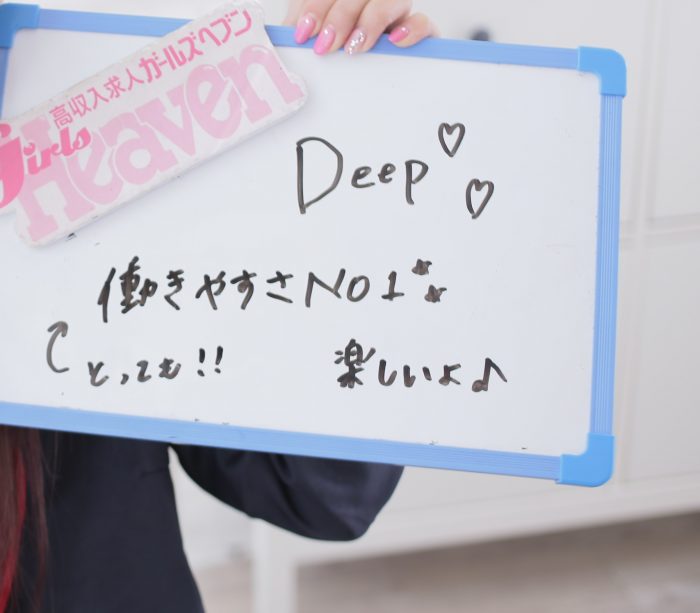 高収入求人ガールズヘブン
Girls
Heaven
Deep♡♡
働きやすさNO1
とっても!!
楽しいよ♪